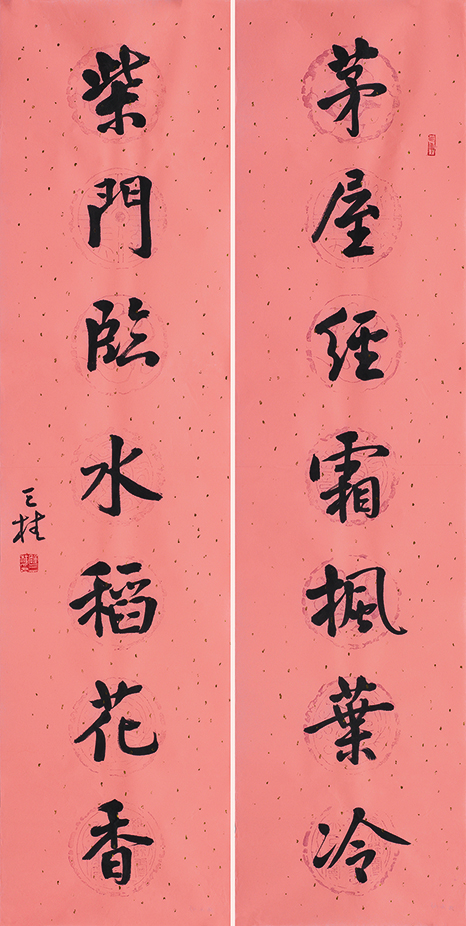 茅屋經霜楓葉冷
柴門臨水稻花香
桂